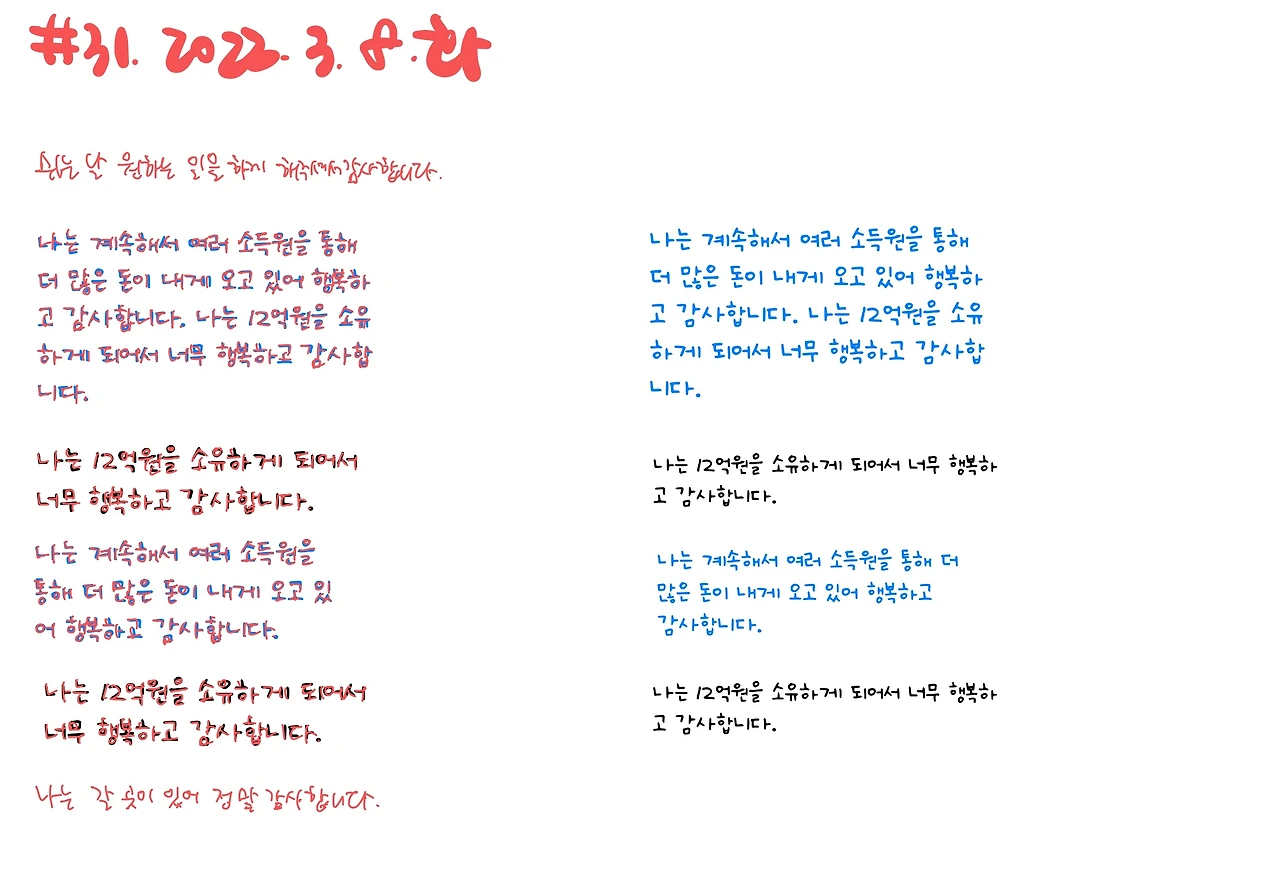 #31. 2022. 3. 8. 화
쉬는 날 원하는 일을 하게 해주셔서 감사합니다.
나는 계속해서 여러 소득원을 통해
더 많은 돈이 내게 오고 있어 행복하
고 감사합니다. 나는 12억원을 소유
하게 되어서 너무 행복하고 감사합
니다.
나는 12억원을 소유하게 되어서
너무 행복하고 감사합니다.
나는 계속해서 여러 소득원을
통해 더 많은 돈이 내게 오고 있
어 행복하고 감사합니다.
나는 12억원을 소유하게 되어서
너무 행복하고 감사합니다.
나는 갈 곳이 있어 정말 감사합니다.
나는 계속해서 여러 소득원을 통해
더 많은 돈이 내게 오고 있어 행복하
고 감사합니다. 나는 12억원을 소유
하게 되어서 너무 행복하고 감사합
니다.
나는 12억원을 소유하게 되어서 너무 행복하
고 감사합니다.
나는 계속해서 여러 소득원을 통해 더
많은 돈이 내게 오고 있어 행복하고
감사합니다.
나는 12억원을 소유하게 되어서 너무 행복하
고 감사합니다.